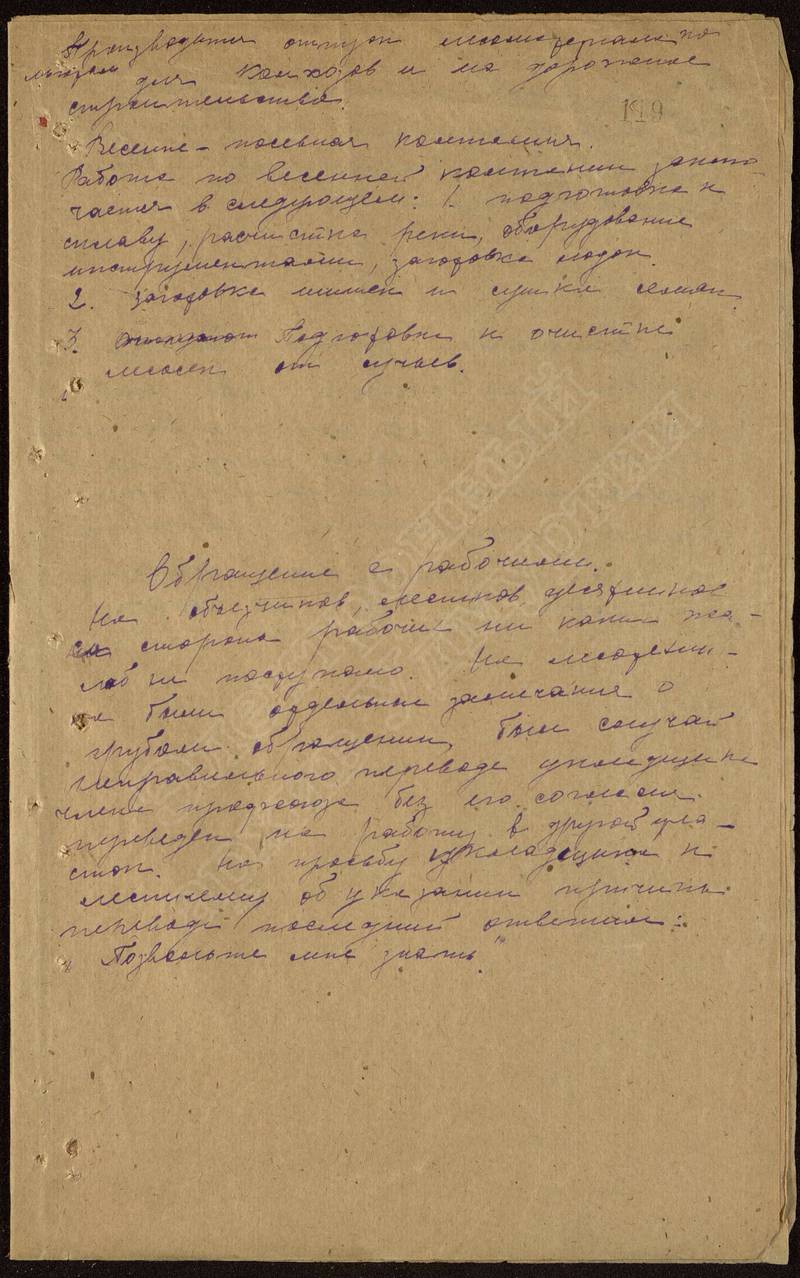 Производится отпуск лесоматериала по
для колхозов и на дорожное
строительство.
119
Весенне-посевная кампания.
Работа по весенней кампании заклю-
чается в следующем: 1. подготовка к
сплаву, расчистка реки, оборудование
инструментами, заготовка лодок.
2. Заготовка шишек и сушка семян.
3. Подготовка к очистке
лесосек от сучьев.
Обращение с рабочими.
На объездчиков, лесников, десятников
со стороны рабочих ни каких жа-
лоб не поступало. На
были отдельные замечания о
грубом обращении, был случай
неправильного перевода укладчика
члена профсоюза без его согласия
переведен на работу в другой уча-
сток. На просьбу укладчика к
лесничему об указании причины
перевода последний ответил:
"Позвольте мне знать"